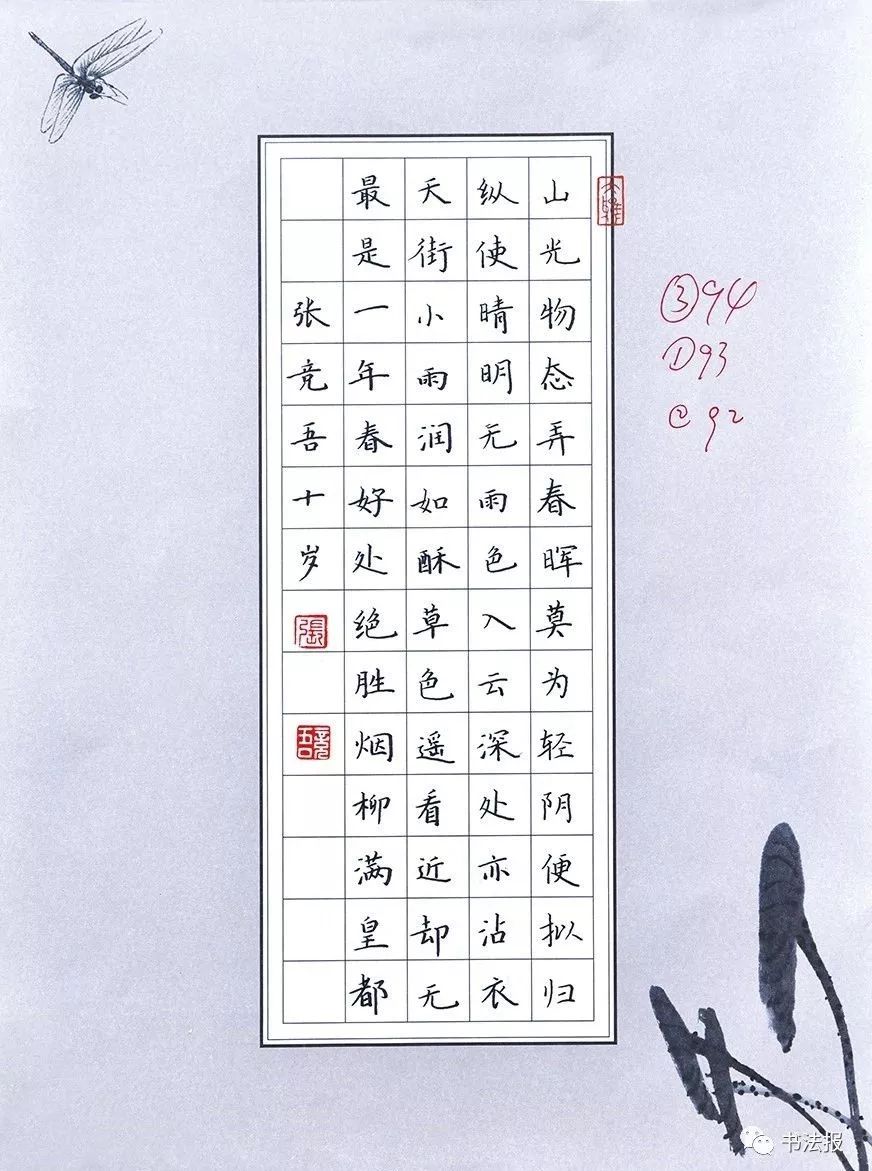 山光物态弄春晖莫为轻阴便拟归
纵使晴明无雨色入云深处亦沾衣
天街小雨润如酥草色遥看近却无
最是一年春好处绝胜烟柳满皇都
张竞吾十岁
張
竞吾
③94
①93
②92
书法报